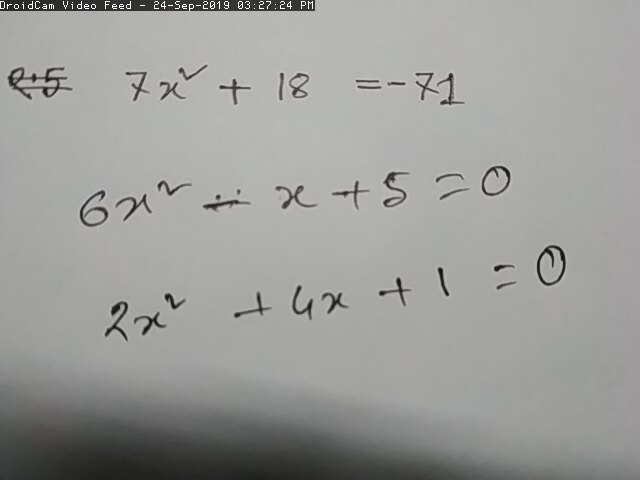 DroidCam Video Feed - 24-Sep-2019 03:27:24 PM
7x² + 18 = -71
6x² - x + 5 = 0
2x² + 4x + 1 = 0